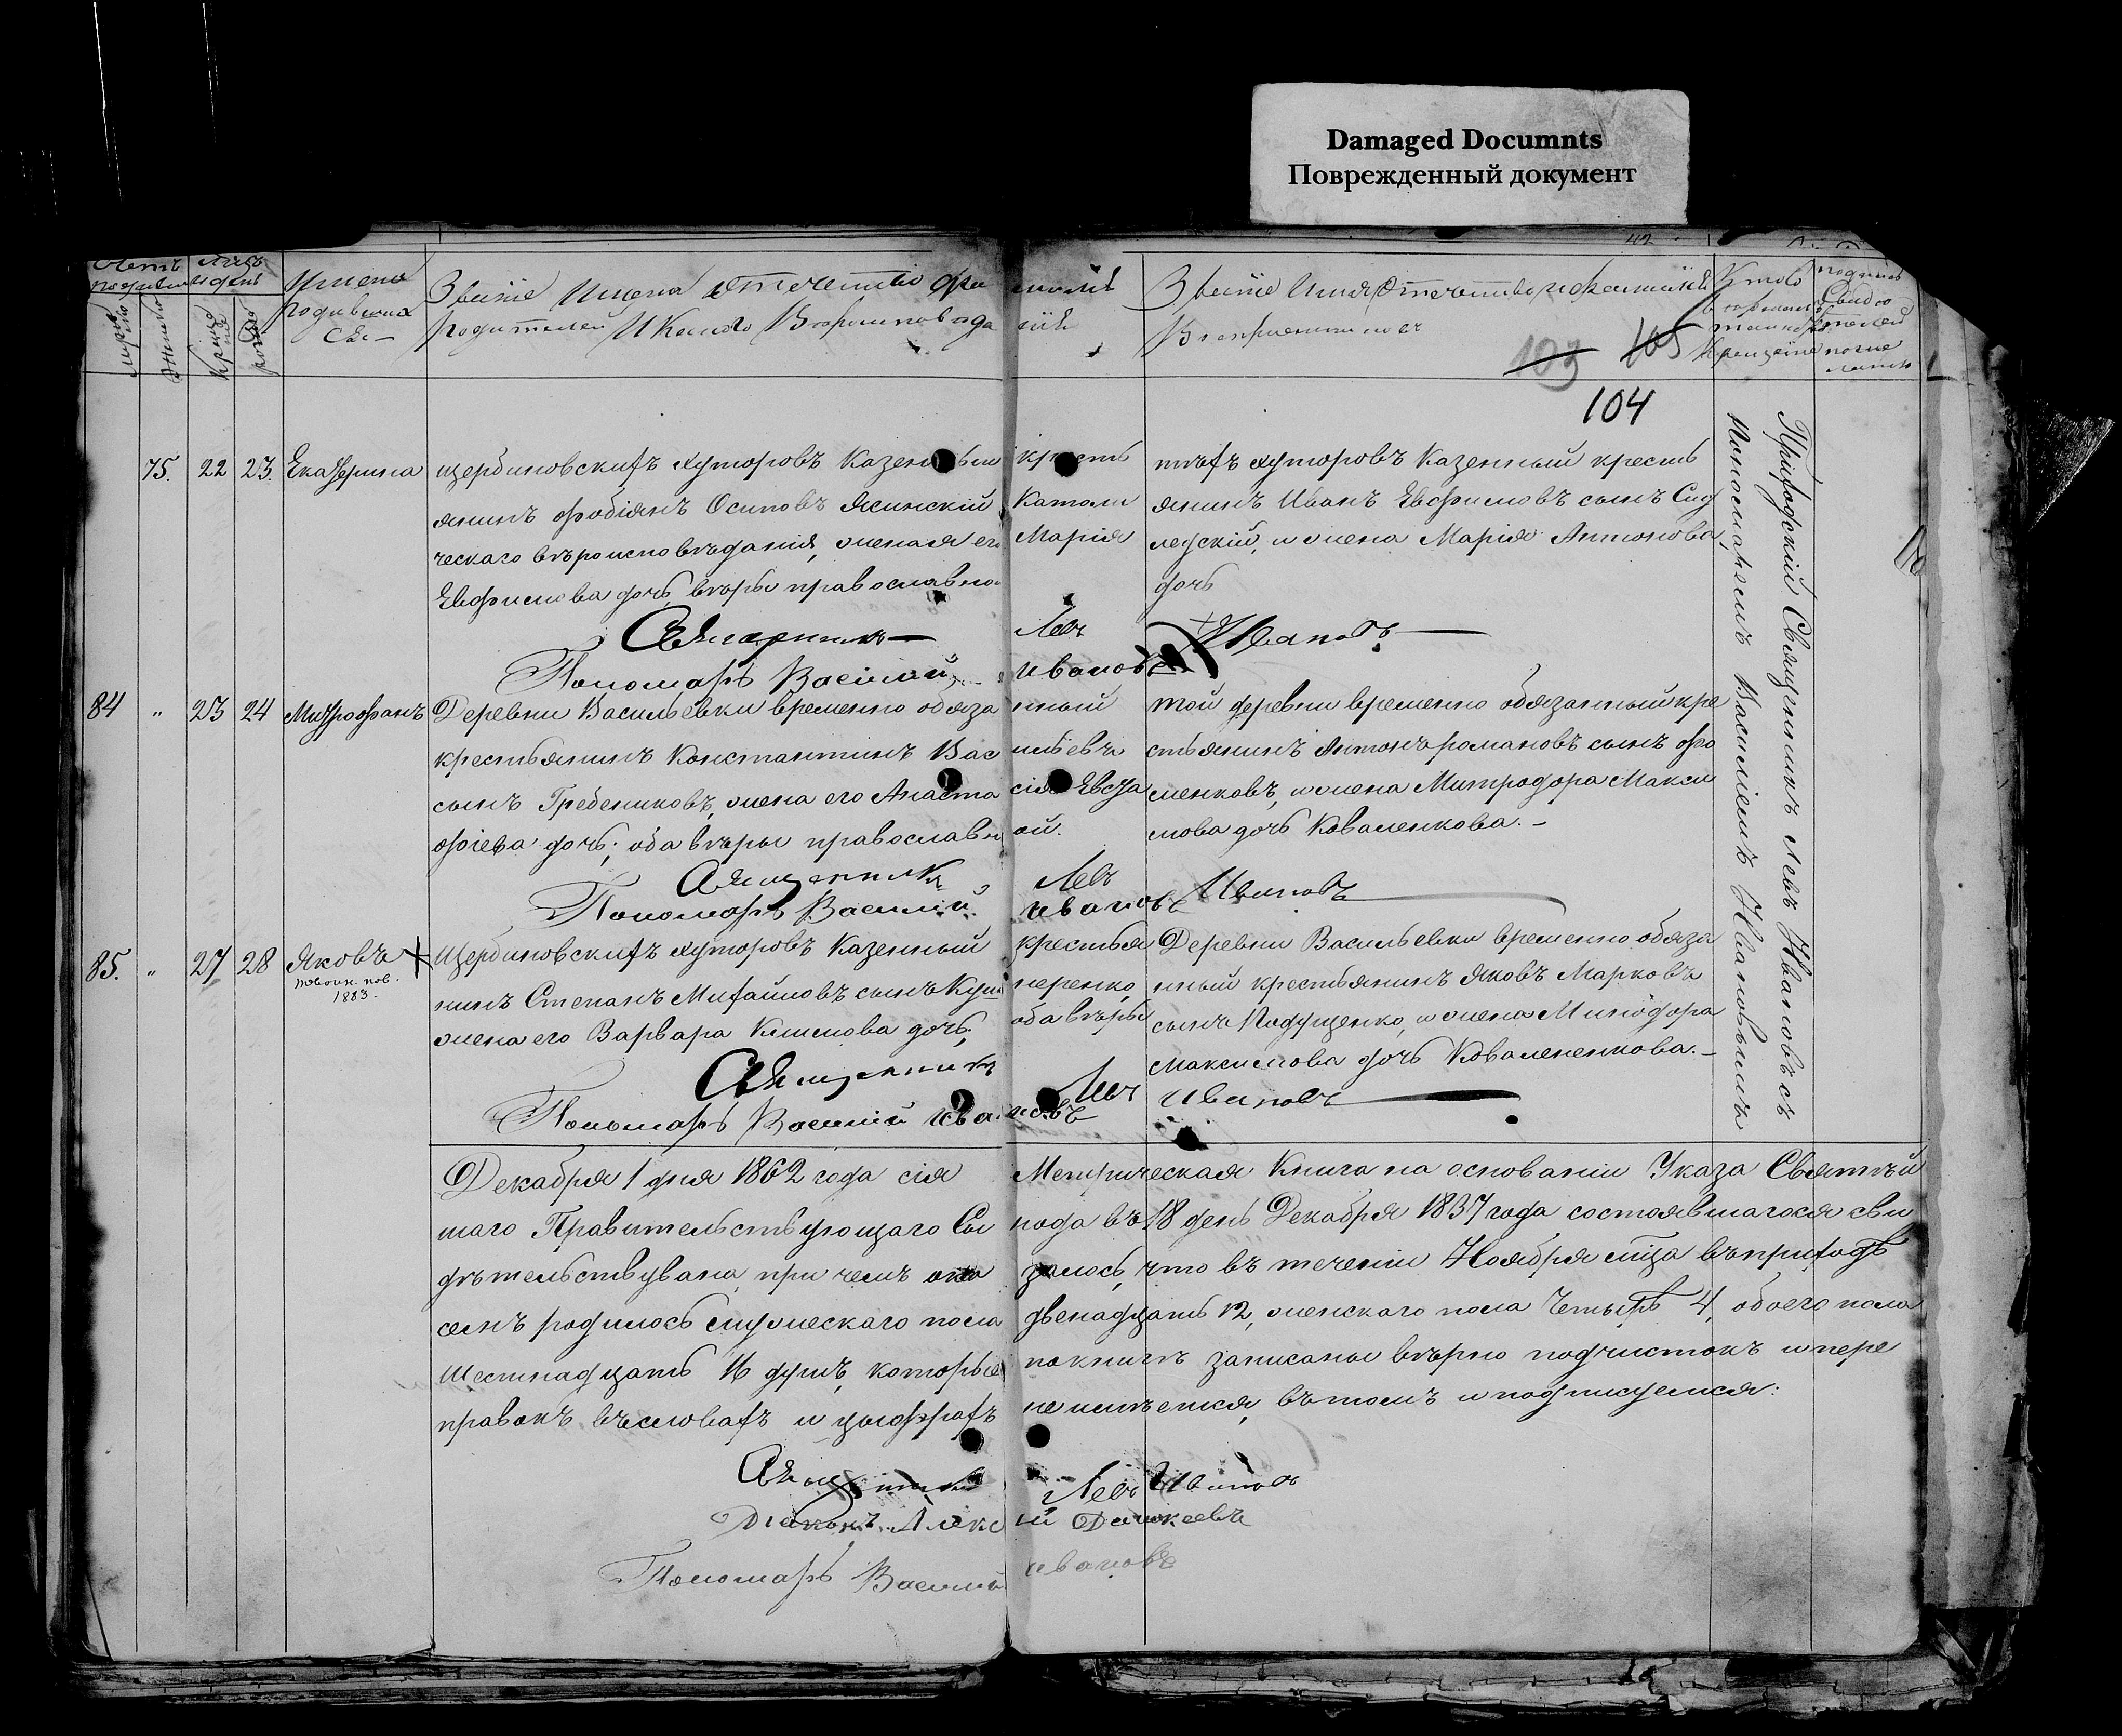 Damaged Documnts
Поврежденный документ
Счетъ родившихся
Мѣсяцъ и день
Имена родившихся
Званіе Имена отчество фамилій
родителей И какого Вѣроисповѣданія
Званіе Имя Отчество и фамилія
Воспріемниковъ
Кто совершалъ таинство крещенія
103 105
104
75. 22 23. Екатерина
щербиновскихъ хуторовъ казенный крестъ
янинъ Фабіянъ Осиповъ Ясинскій Катали
ческаго вѣроисповѣданія, жена его Марія
Евфимова дочь вѣры православной
тѣхъ хуторовъ казенный кресть
янинъ Иванъ Евфимовъ сынъ
и жена Марія Антонова
дочь
Священникъ Левъ Ивановъ
Пономарь Василій Ивановъ
84 " 23 24 Митрофанъ
Деревни Васильевки временно обязанный
крестьянинъ Константинъ Васильевъ
сынъ Гребениковъ, жена его Анастасія Евста
фіева дочь; оба вѣры православной.
той деревни временно обязанный кре
стьянинъ Антонъ романовъ сынъ Фо
менковъ, и жена Митродора Макси
мова дочь Коваленкова. –
Священникъ Левъ Ивановъ
Пономарь Василій Ивановъ
85. " 27 28 Яковъ
1883.
Щербиновскихъ хуторовъ казенный крестья
нинъ Стефанъ Михайловъ сынъ
жена его Варвара Климова дочь, оба вѣры
Деревни Васильевки временно обяза
нный крестьянинъ Яковъ Марковъ
сынъ Подущенко, и жена Минодора
Максимова дочь Коваленкова. –
Священникъ Левъ Ивановъ
Пономарь Василій Ивановъ
Приходскій Священникъ Левъ Ивановъ съ
Пономаремъ Василіемъ Ивановымъ
Декабря 1 дня 1862 года сія Метрическая Книга на основаніи Указа Святѣй
шаго Правительствующаго Сѵнода въ 18 день Декабря 1837 года состоявшагося сви
дѣтельствувана, при чемъ оказалось, что въ теченіи Ноября мѣсяца въ приходѣ
семъ родилось мужескаго пола двенадцать 12, женскаго пола Четырѣ 4, обоего пола
Шестнадцать 16 душъ, которые по книгѣ записаны вѣрно подчистокъ и пере
правокъ въ словахъ и цыфрахъ не имѣется, въ томъ и подписуемся:
Священникъ Левъ Ивановъ
Діаконъ
Пономарь Василій Ивановъ